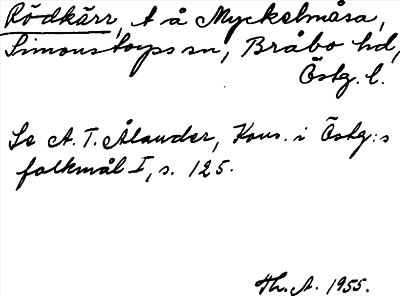 Rödkärr, t å Myckelmåsa,
Simonstorps sn, Bråbo hd,
Östg. l.
Se A. T. Ålander, Kons. i Östg:s
folkmål I, s. 125.
Th. A. 1955.